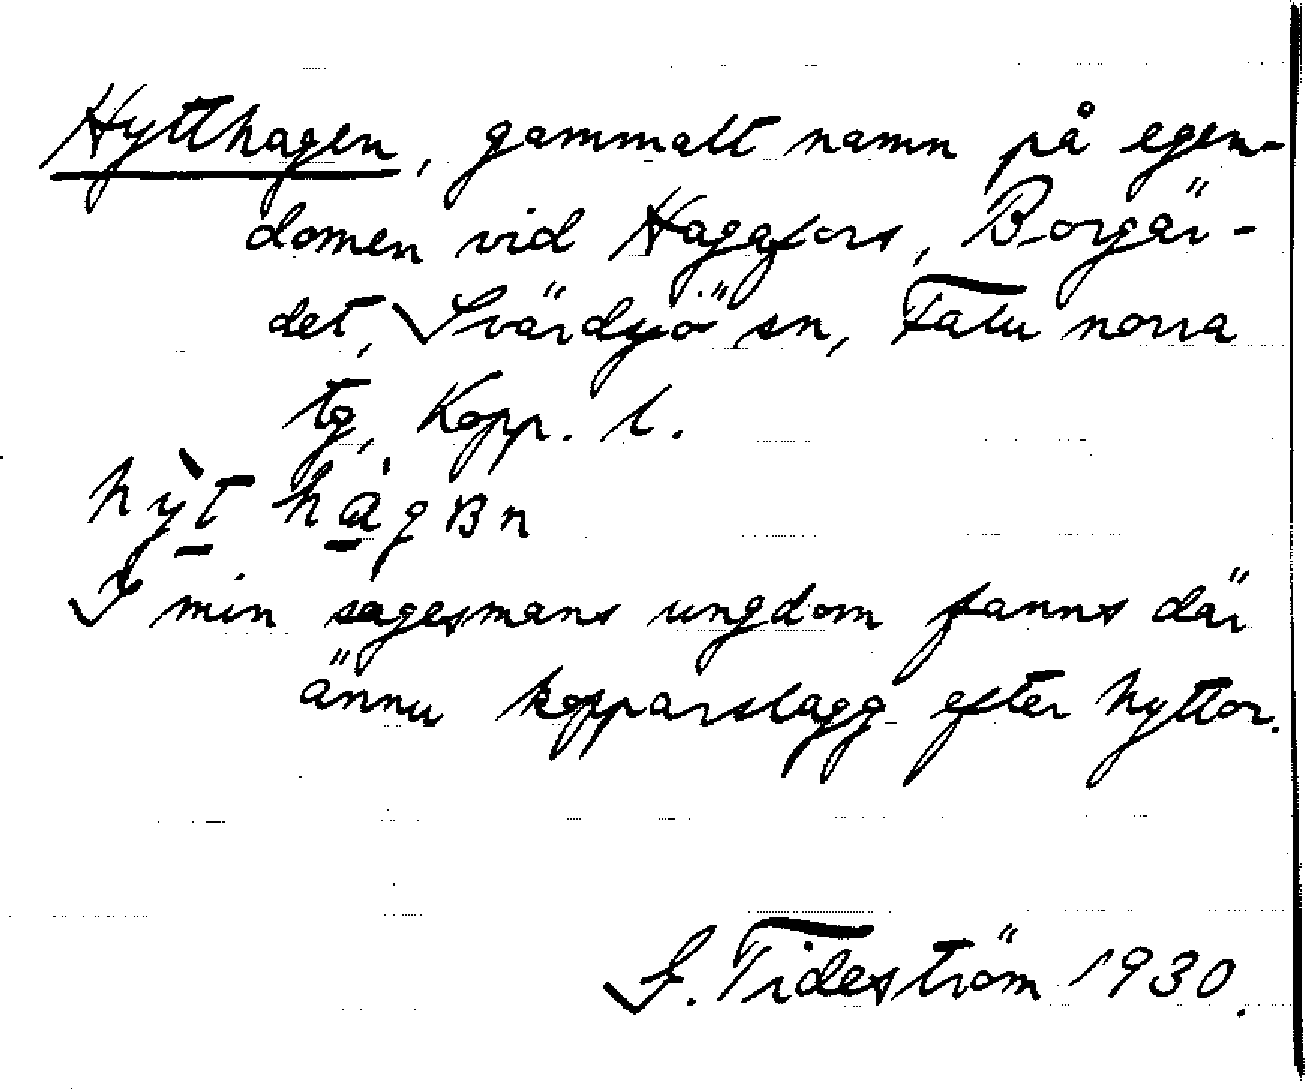 Hytthagen, gammalt namn på egen-
domen vid Hagafors, Borgär-
det, Svärdsjö sn, Falu norra
tg, Kopp. l.
I min sagesmans ungdom fanns där
ännu kopparslagg efter hyttor.
I. Tideström 1930.